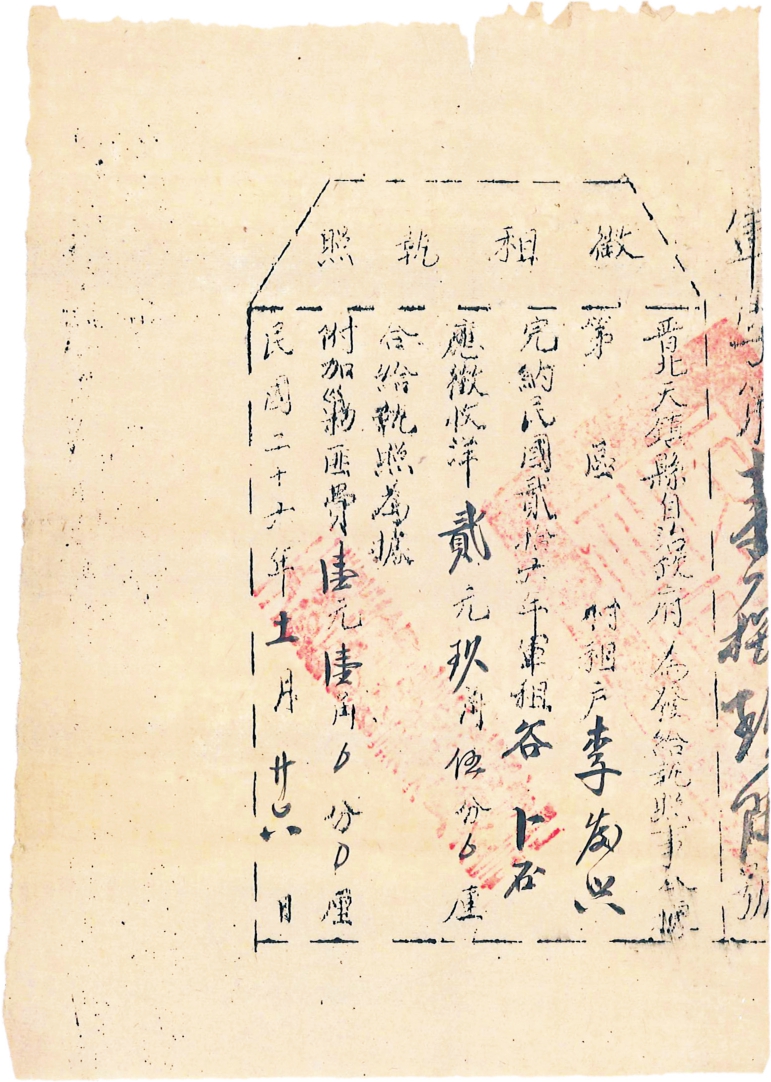 徵租執照
軍字第 號
晉北天鎮縣自治政府為發給執照事茲據
第 區 村租戶李萬興
完納民國貳拾六年軍租谷卜石
應徵收洋貳元玖角伍分 厘
合給執照為據
附加 匪費壹元壹角 分 厘
民國二十六年十一月廿六日